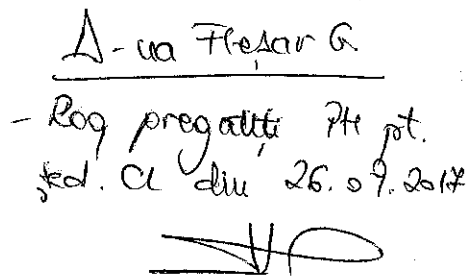 D-na Fleșar G.
- Rog pregătiți PH pt.
șed. CL din 26.09.2017